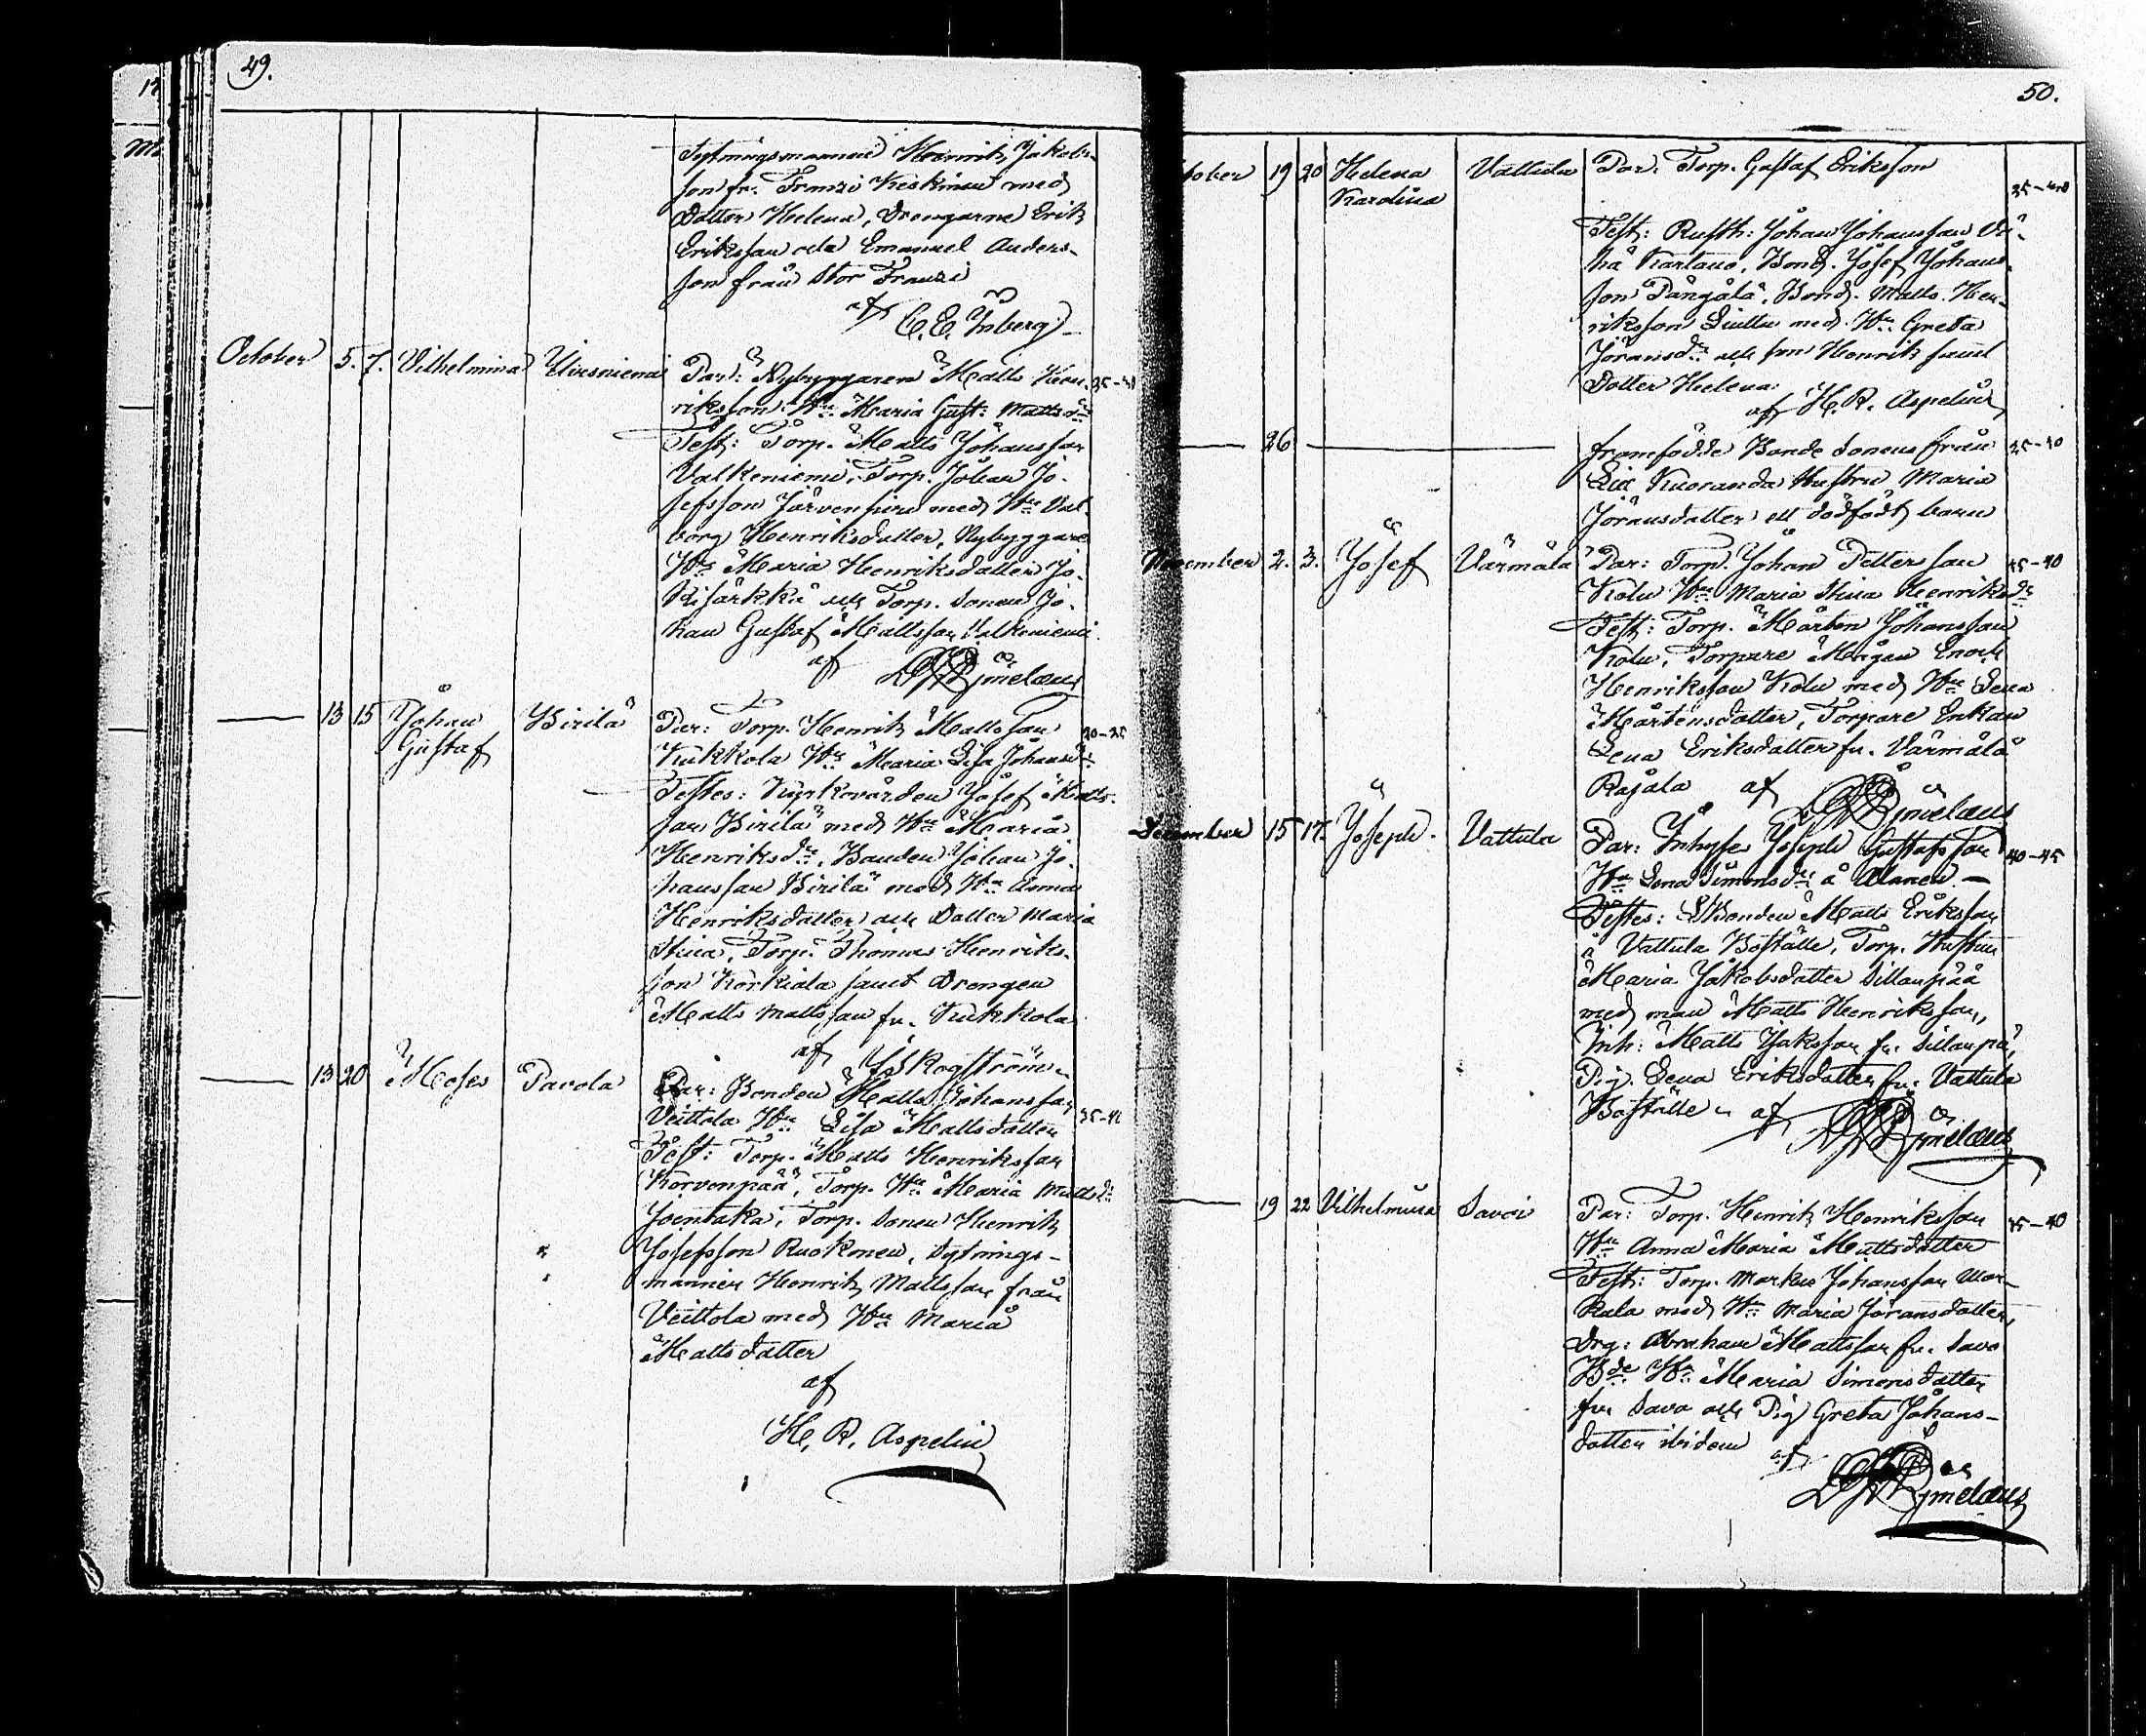 49.
Sytningsmannen Henrik Jakobs-
son fr. Fransi Keskinen med
Dotter Helena, Drengarne Erik
Eriksson och Emanuel Anders-
son från Stor Fransi
af C. E. Inberg
October 5. 7. Vilhelmina Uiresniemi Par: Nybyggaren Matts Hen- 35-40
riksson Hu Maria Gust: Mattsdr
Test: Torp. Matts Johansson
Valkeniemi, Torp. Johan Jo-
sefsson Järvenpää med Hu Val-
borg Henriksdotter, Nybyggare
Hu Maria Henriksdotter Jo-
kisärkkä och Torp. Sonen Jo-
han Gustaf Mattsson Valkeniemi.
af
13 15 Johan Birilä Par: Torp. Henrik Mattsson 20-25
Gustaf Kukkola Hu Maria Lisa Johansdr
Testes: Kyrkovärden Josef Matts-
son Birilä med Hu Maria
Henriksdr, Bonden Johan Jo-
hansson Birilä med Hu Anna
Henriksdotter och Dotter Maria
Stina, Torp. Thomas Henriks-
son Körkiala samt Drengen
Matts Mattsson fr. Kukkola
af Skogström
13 20 Moses Pavola Par: Bonden Matts Johansson
Veittola Hu Lisa Mattsdotter 35-40
Test: Torp. Matts Henriksson
Korvenpää, Torp. Hu Maria Mattsdr
Joentaka, Torp. Sonen Henrik
Josefsson Ruokonen, Sytnings-
mannen Henrik Mattsson från
Veittola med Hu Maria
Mattsdotter
af
H. R. Aspelin
50.
October 19 20 Helena Vattula Par: Torp. Gustaf Eriksson 35-40
Karolina
Test: Rusth: Johan Johansson
Kartano, Bond. Josef Johans-
son Pångälä, Bond. Matts Hen-
riksson Liuttu med Hu Greta
Jöransdr och son Henrik samt
Dotter Helena.
af H. R. Aspelin
26 framfödde Bonde Sonens från 35-40
Kuoranda Hustru Maria
Jöransdotter ett dödfödt barn
November 2. 3. Josef Värmälä Par: Torp. Johan Petterson 35-40
Kolu Hu Maria Stina Henriksdr
Test: Torp. Mårten Johansson
Kolu, Torpare Mågen Enoch
Henriksson Kolu med Hu Lena
Mårtensdotter, Torpare Enkan
Lena Eriksdotter fr. Värmälä
Rajala af
December 15 17. Joseph Vattula Par: Inhyses Joseph Gustafsson 40-45
Hu Lena Simonsdr å Alanen.
Testes: Bonden Matts Eriksson
å Vattula Boställe, Torp. Hustrun
Maria Jakobsdotter Sillanpää
med man Matts Henriksson,
Inh: Matts Isaksson fr. Sillanpä,
Pig. Lena Eriksdotter fr. Vattula
Boställe af
19 22 Vilhelmina Savoi Par: Torp. Henrik Henriksson 35-40
Hu Anna Maria Mattsdotter
Test: Torp. Markus Johansson
med Hu Maria Jöransdotter,
Drg: Abraham Mattsson fr. Savo
Bde Hu Maria Simonsdotter
fr. Savo och Pig Greta Johans-
dotter ibidem af